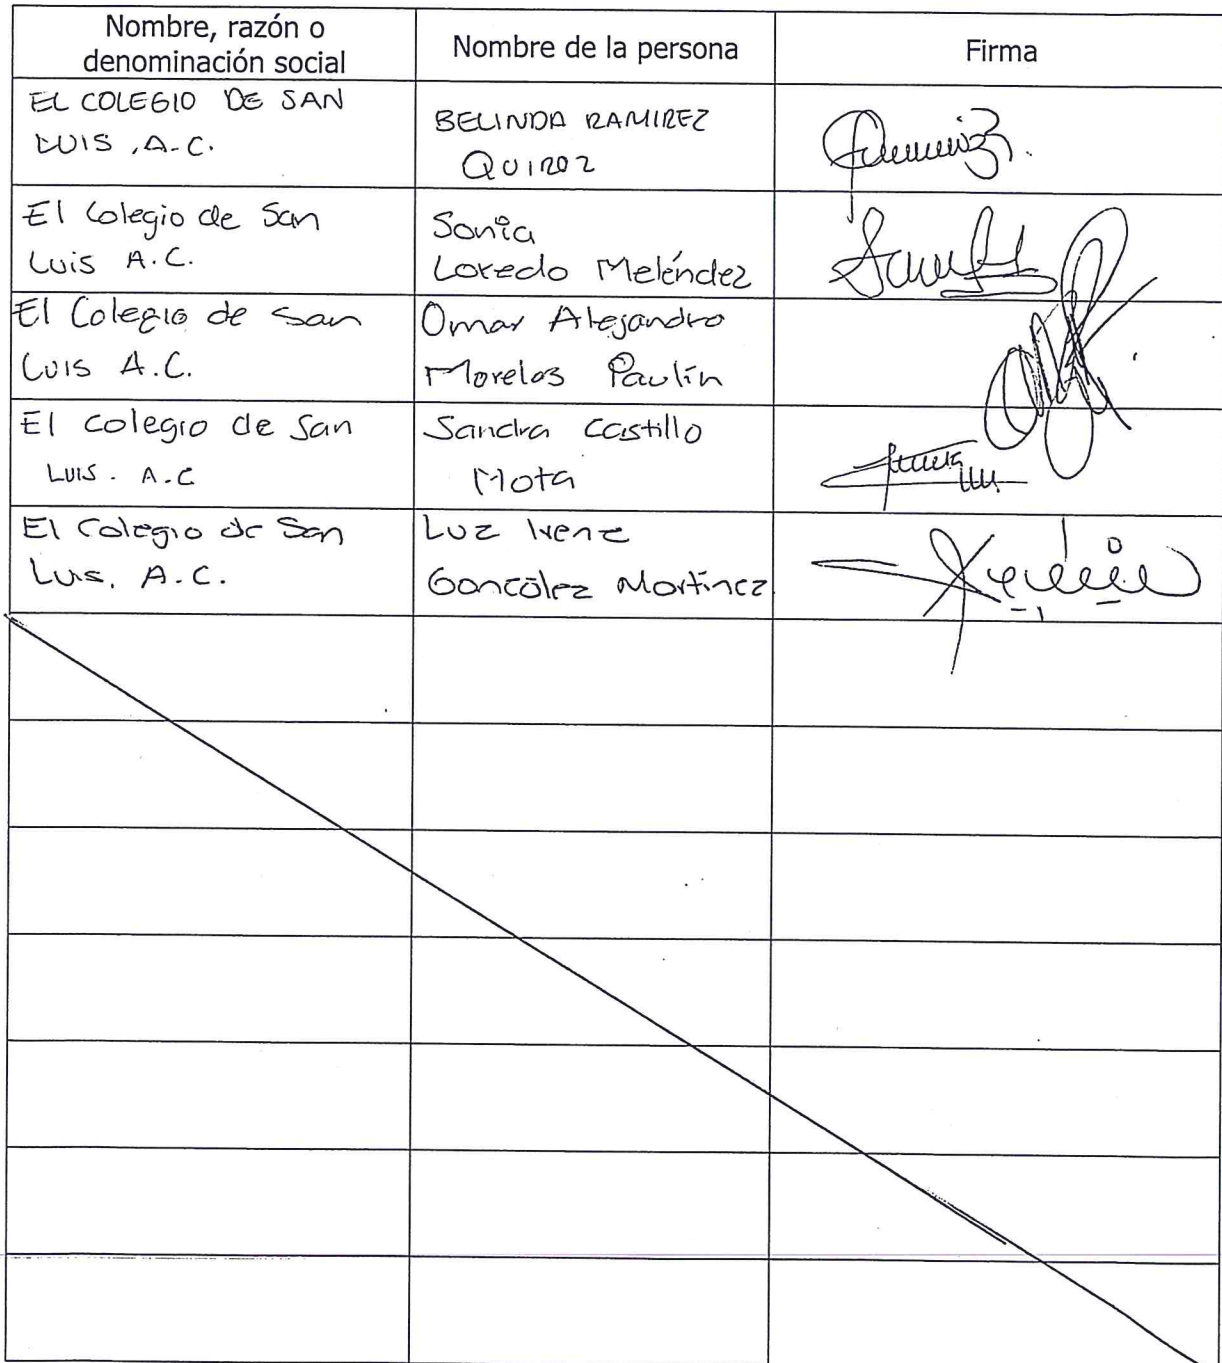 Nombre, razón o
denominación social
Nombre de la persona
Firma
EL COLEGIO DE SAN
LUIS, A.C.
BELINDA RAMIREZ
QUIROZ
El Colegio de San
Luis A.C.
Sonia
Loredo Meléndez
El Colegio de San
Luis A.C.
Omar Alejandro
Morelos Paulín
El colegio de San
LUIS. A.C
Sandra Castillo
Mota
El Colegio de San
Luis. A.C.
Luz Irene
González Martínez